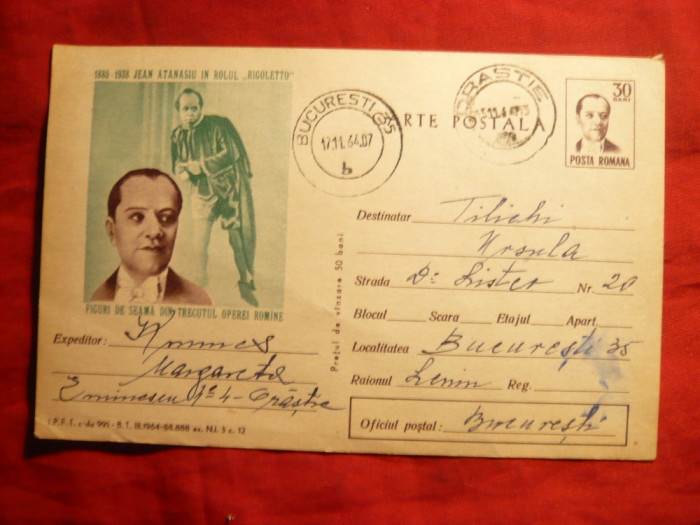 1885-1938 JEAN ATANASIU IN ROLUL „RIGOLETTO”
FIGURI DE SEAMĂ DIN TRECUTUL OPEREI ROMÎNE
BUCUREȘTI 35
17.11. 64.07
b
ORASTIE
CARTE POSTALA
30
BANI
POSTA ROMANA
Destinatar Tilichi
Ursula
Strada Dr Lister Nr. 20
Blocul Scara Etajul Apart.
Localitatea București 35
Raionul Lenin Reg.
Oficiul poștal: București
Prețul de vînzare 50 bani
Expeditor:
Margareta
Eminescu 4 - Orăștie
I.P.F.T. c-da 991 - B.T. III.1964-88.888 ex. N.I. 5 c. 12